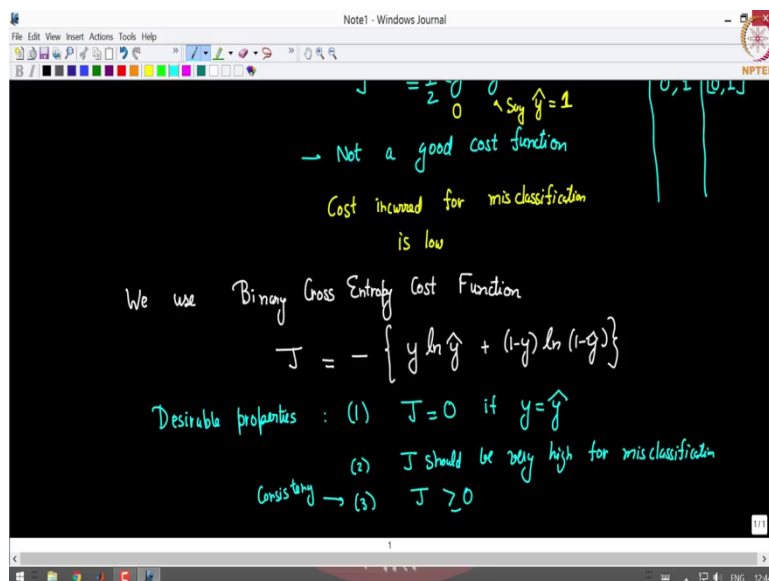 Note1 - Windows Journal
File Edit View Insert Actions Tools Help
NPTEL
J = 1/2
0 Say ŷ = 1
→ Not a good cost function
Cost incurred for misclassification
is low
We use Binary Cross Entropy Cost Function
J = - { y ln ŷ + (1-y) ln (1-ŷ) }
Desirable properties : (1) J = 0 if y = ŷ
(2) J should be very high for misclassification
Consistency → (3) J ≥ 0
1/1
1
ENG